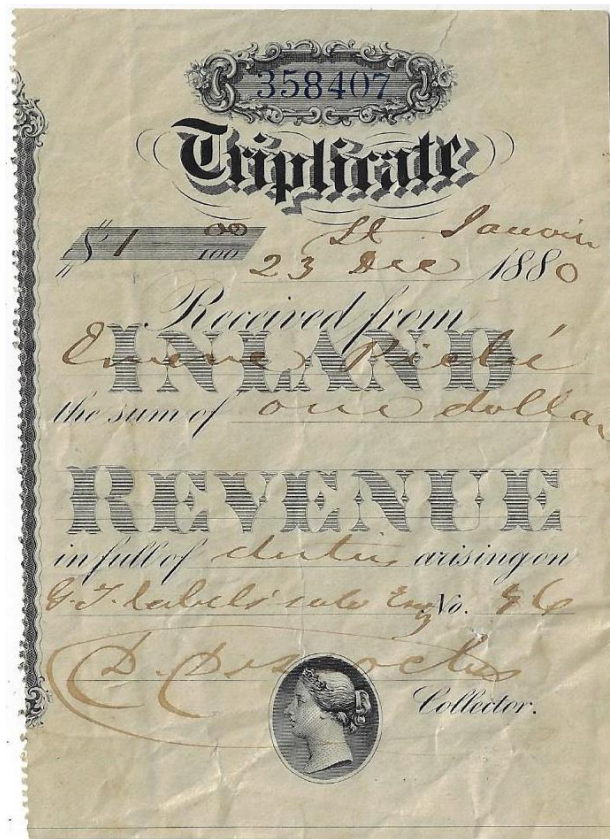 358407
Triplicate
$1 00/100 St
23 Dec 1880
Received from
INLAND
the sum of one dollar
REVENUE
in full of duties arising on
labels No.
D.
Collector.